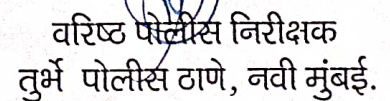 वरिष्ठ पोलीस निरीक्षक
तुर्भे पोलीस ठाणे, नवी मुंबई.